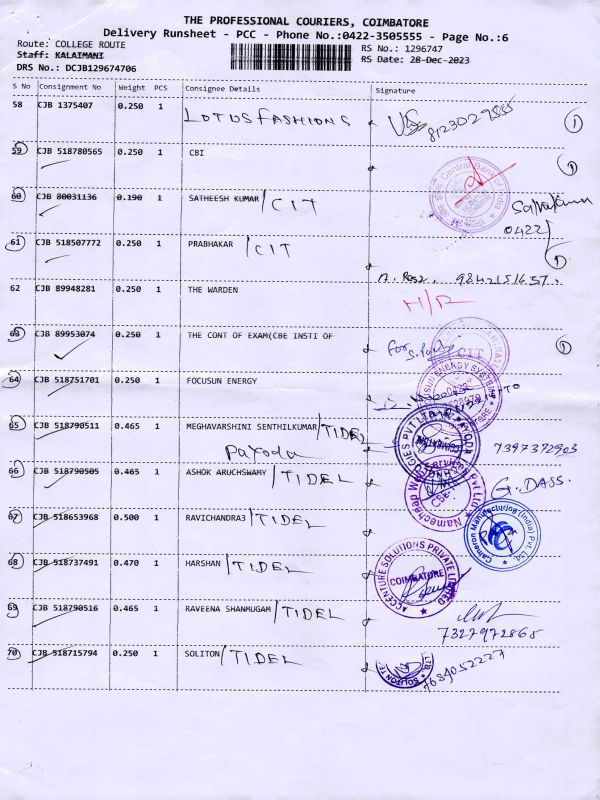 THE PROFESSIONAL COURIERS, COIMBATORE
Delivery Runsheet - PCC - Phone No.:0422-3505555 - Page No.:6
Route: COLLEGE ROUTE RS No.: 1296747
Staff: KALAIMANI RS Date: 28-Dec-2023
DRS No.: DCJB129674706
S No Consignment No Weight PCS Consignee Details Signature
58 CJB 1375407 0.250 1 LOTUS FASHIONS 8123027555 1
59 CJB 518780565 0.250 1 CBI Central Bank of India 1
60 CJB 80031136 0.190 1 SATHEESH KUMAR / CIT
0422
61 CJB 518507772 0.250 1 PRABHAKAR / CIT 1
62 CJB 89948281 0.250 1 THE WARDEN
H/R
63 CJB 89953074 0.250 1 THE CONT OF EXAM(CBE INSTI OF for CIT 1
64 CJB 518751701 0.250 1 FOCUSUN ENERGY
65 CJB 518790511 0.465 1 MEGHAVARSHINI SENTHILKUMAR / TIDEL
Payoda 7397372903
66 CJB 518790505 0.465 1 ASHOK ARUCHSWAMY / TIDEL G. DASS.
67 CJB 518653968 0.500 1 RAVICHANDRA3 / TIDEL Cameron Manufacturing (India) Pvt. Ltd.
68 CJB 518737491 0.470 1 HARSHAN / TIDEL ACCENTURE SOLUTIONS PRIVATE LIMITED
COIMBATORE
69 CJB 518790516 0.465 1 RAVEENA SHANMUGAM / TIDEL
7327972865
70 CJB 518715794 0.250 1 SOLITON / TIDEL
7684052227